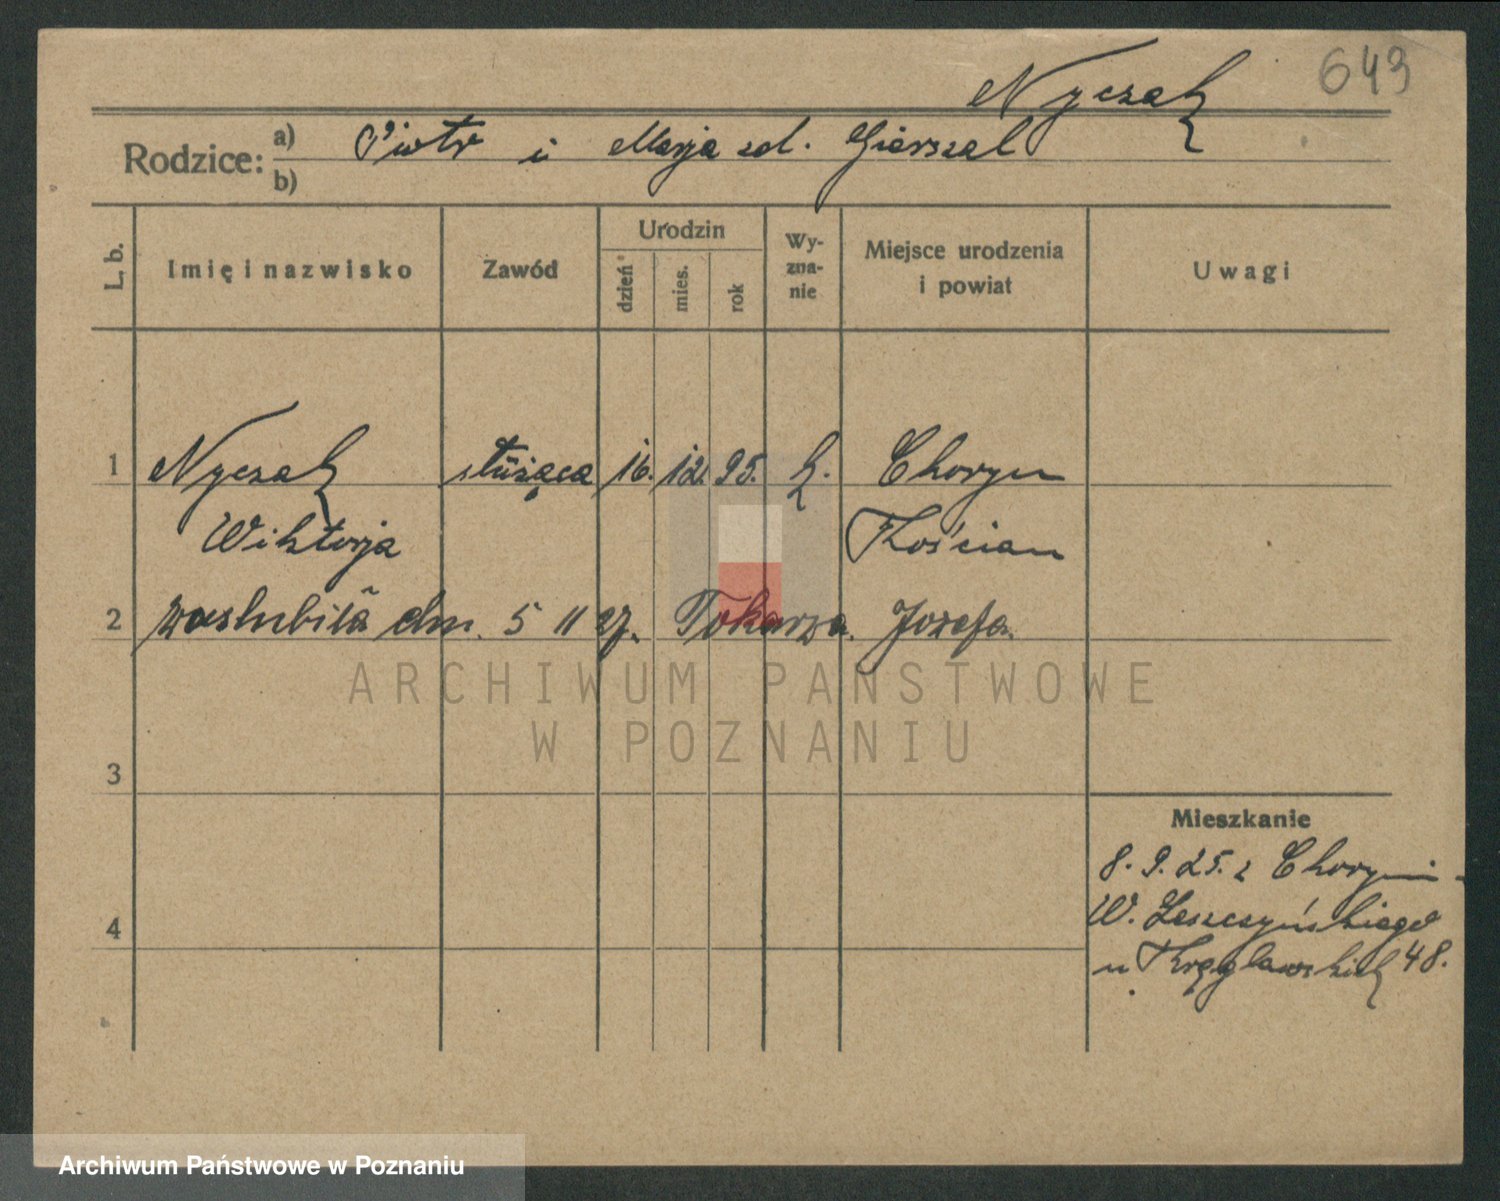 643
Nyczak
Rodzice: a) Piotr i Marja zd. Gierszal
b)
L. b. Imię i nazwisko Zawód Urodzin dzień mies. rok Wy-zna-nie Miejsce urodzenia i powiat Uwagi
1 Nyczak służąca 16. 12. 95. k. Choryn
Wiktorja Kościan
2 zaslubiła dn. 5 11 27. Tokarza Józefa.
ARCHIWUM PAŃSTWOWE
W POZNANIU
3
Mieszkanie
8. 9. 25. z Choryni
W. Leszczyńskiego
4
u 48.
Archiwum Państwowe w Poznaniu